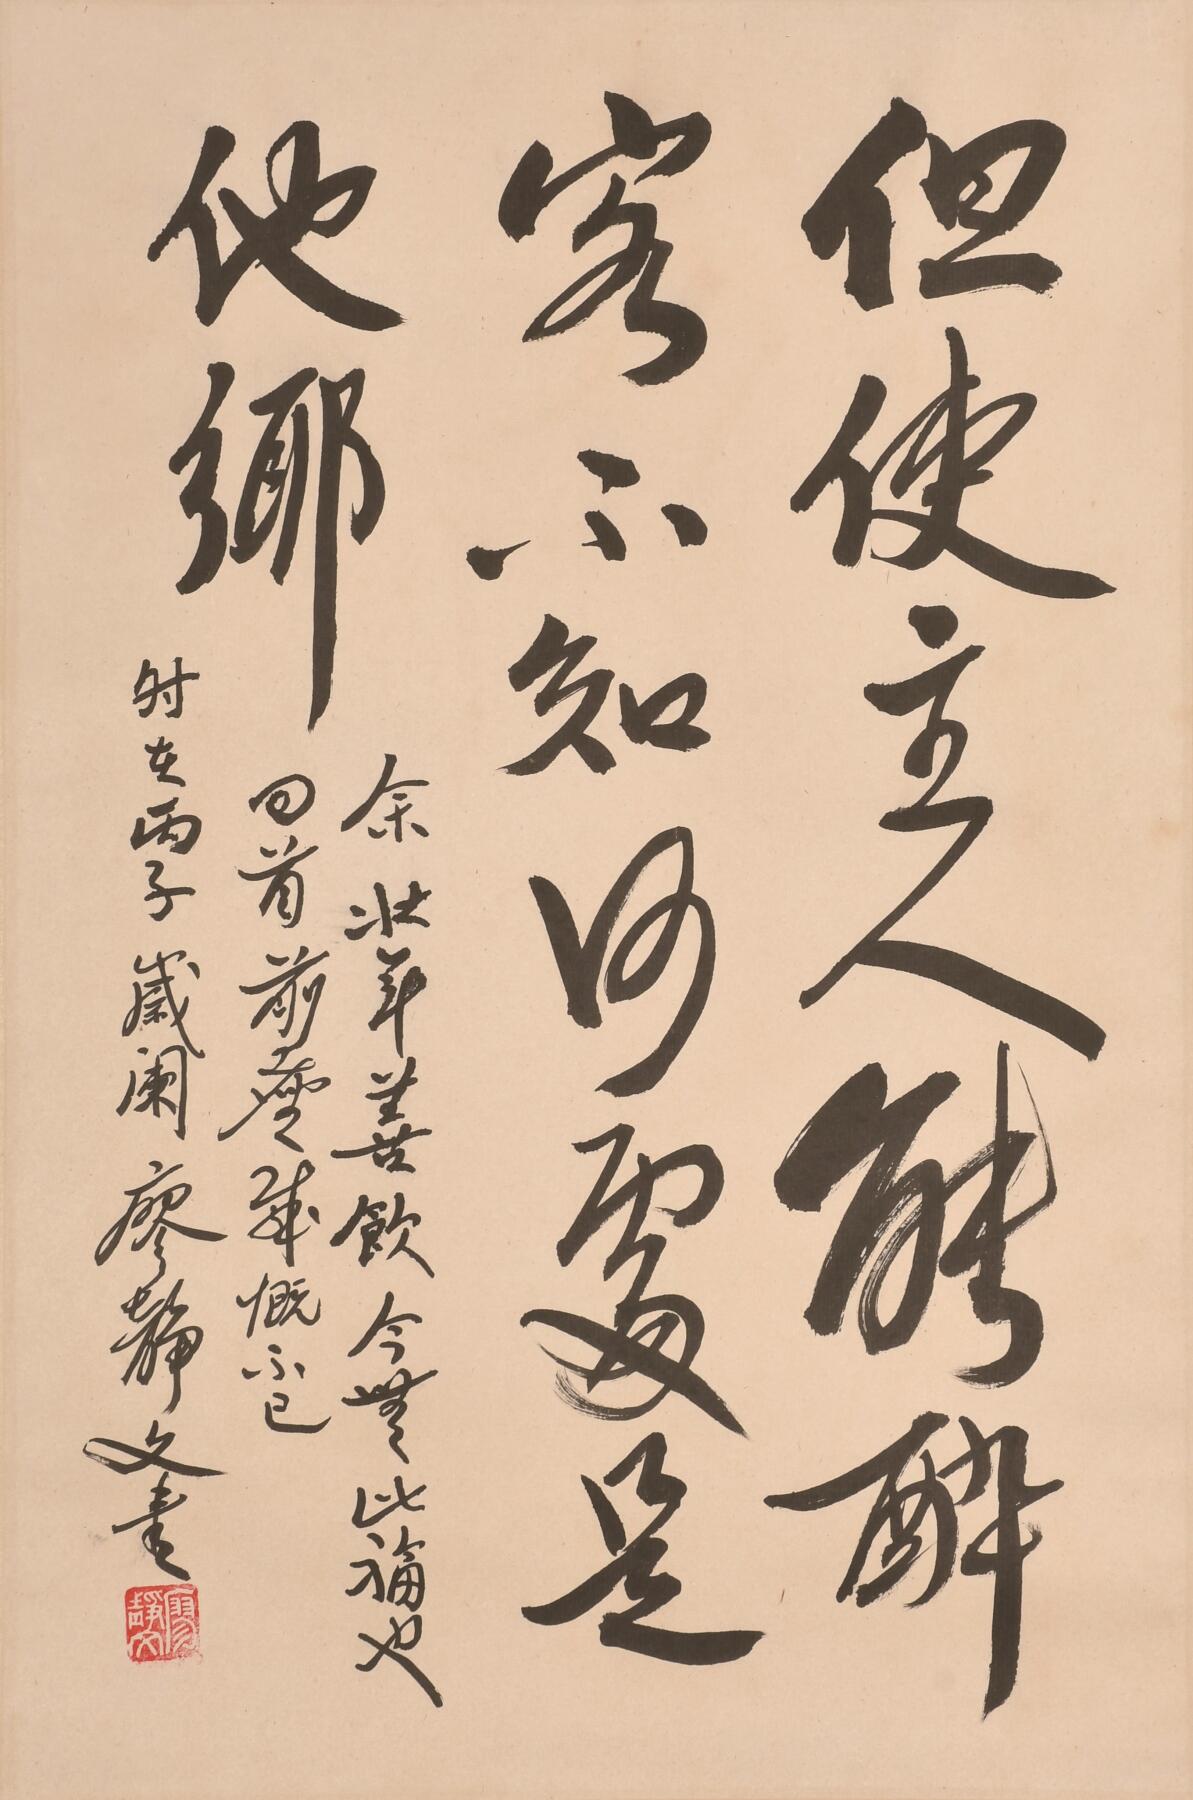 但使主人能醉
客不知何處是
他鄉
余壯年善飲今無此福也
回首前塵感慨不已
时在丙子歲闌廖靜文書
廖靜文